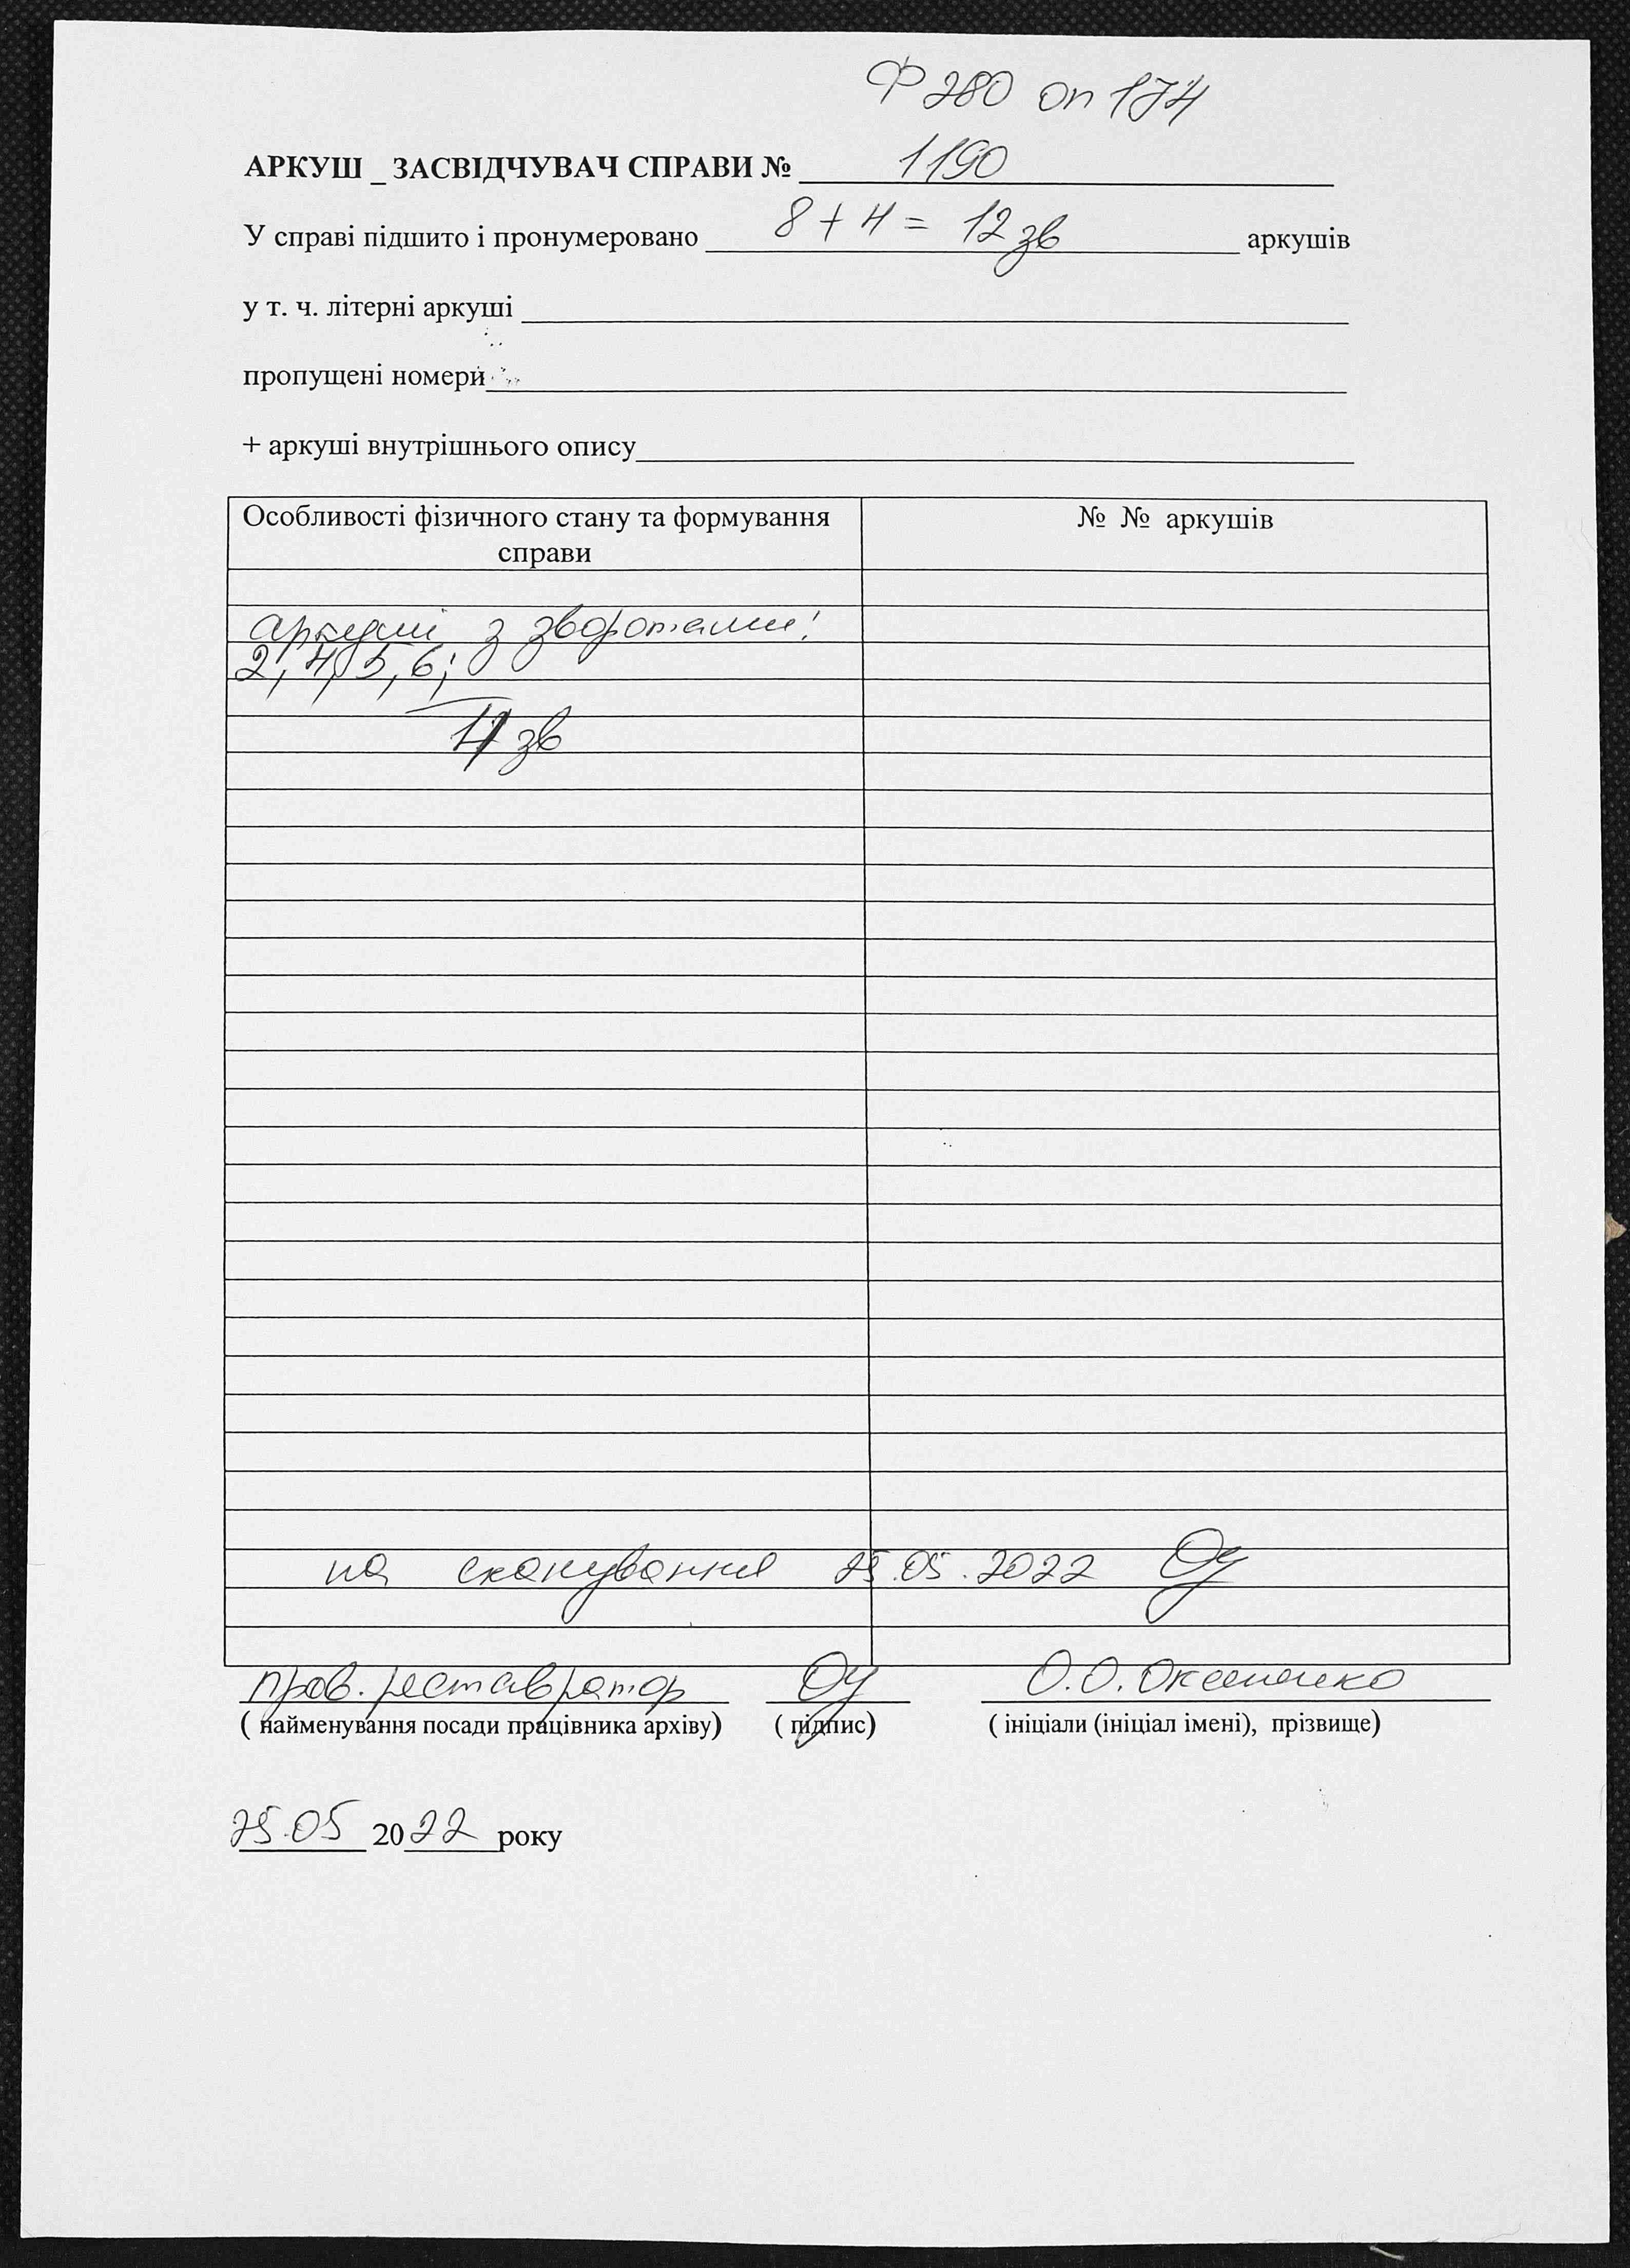 Ф 280 оп 174
АРКУШ _ ЗАСВІДЧУВАЧ СПРАВИ № 1190
У справі підшито і пронумеровано 8 + 4 = 12 зв аркушів
у т. ч. літерні аркуші
пропущені номери
+ аркуші внутрішнього опису
Особливості фізичного стану та формування справи
№ № аркушів
аркуші з зворотами:
2, 4, 5, 6;
4 зв
на сканування 25.05.2022
пров. реставратор О.О.
( найменування посади працівника архіву) ( підпис) ( ініціали (ініціал імені), прізвище)
25.05 2022 року